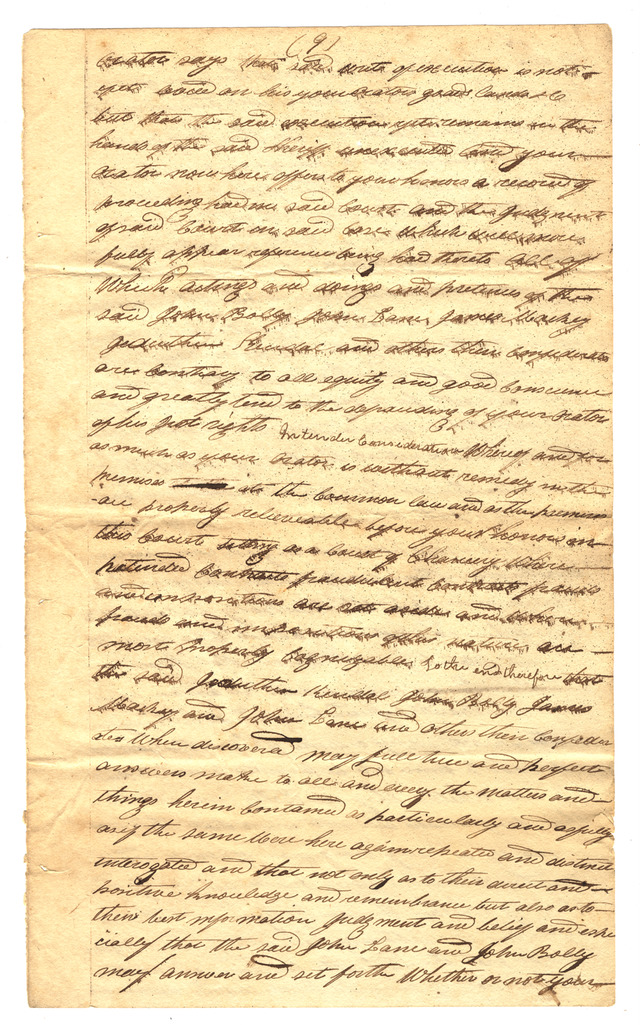 (9)
orator says that said writ of execution is not
yet levied on his your orators goods Lands &c
but that the said execution yet remains in the
hands of the said Sheriff unexecuted and your
orator now here offers to your honors a record of
proceeding had in said Court and the Judgment
of said Court in said case which will more
fully appear reference being had thereto All of
Which actings and doings and pretences of the
said John Bolly John Lane James Mackey
Jeduthan Kendal and others their Confederates
are Contrary to all equity and good Conscience
and greatly tend to the defrauding of your orator
of his just rights In tender Consideration Whereof and for
as much as your orator is without remedy in the
premises at the Common law and as the premises
are properly relievable before your honors in
this Court sitting as a Court of Chancery Where
pretended Contracts fraudulent Contracts frauds
and impositions are set aside and where
frauds and impositions of this nature are
most Properly Cognizable To the end therefore that
the said Jeduthan Kendal John Bolly James
Mackey and John Lane and others their Confeder
ates When discovered may full true and perfect
answers make to all and every the matters and
things herein Contained as particularly and as fully
as if the same Were here again repeated and distinct
interogated and that not only as to their direct and
positive knowledge and remembrance but also as to
their best information Judgment and belief and espe
cially that the said John Lane and John Bolly
may answer and set forth Whether or not your